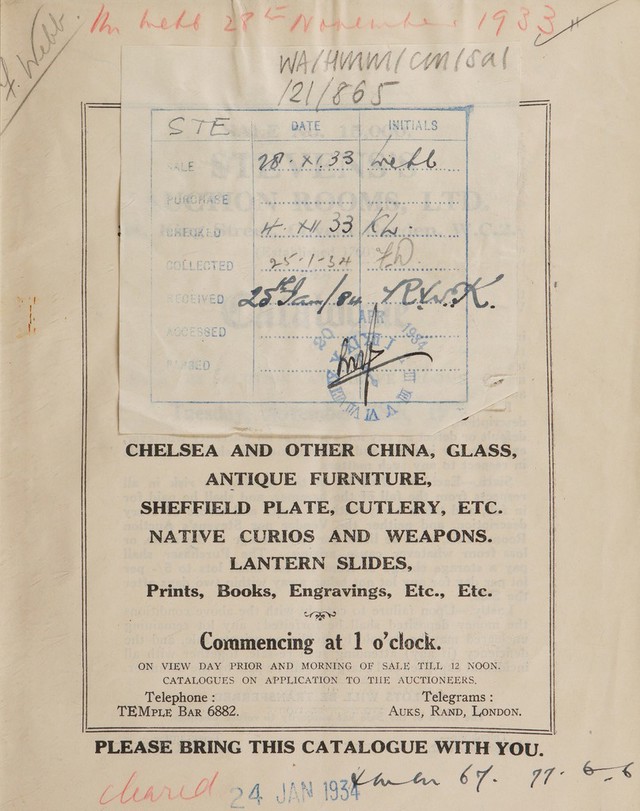 Mr Webb 28th November 1933
F. Webb.
WA/HMM/CM/Sal
/21/865
STE DATE INITIALS
SALE 28·XI.33 Webb
PURCHASE
CHECKED 4·XII 33 KL.
COLLECTED 25-1-34 F.D.
RECEIVED 25th Jan/34 R.W.K.
ACCESSED
PASSED
APR 1934
CHELSEA AND OTHER CHINA, GLASS,
ANTIQUE FURNITURE,
SHEFFIELD PLATE, CUTLERY, ETC.
NATIVE CURIOS AND WEAPONS.
LANTERN SLIDES,
Prints, Books, Engravings, Etc., Etc.
Commencing at 1 o'clock.
ON VIEW DAY PRIOR AND MORNING OF SALE TILL 12 NOON.
CATALOGUES ON APPLICATION TO THE AUCTIONEERS.
Telephone : Telegrams :
TEMple Bar 6882. Auks, Rand, London.
PLEASE BRING THIS CATALOGUE WITH YOU.
cleared 24 JAN 1934 67. 77. 6-6